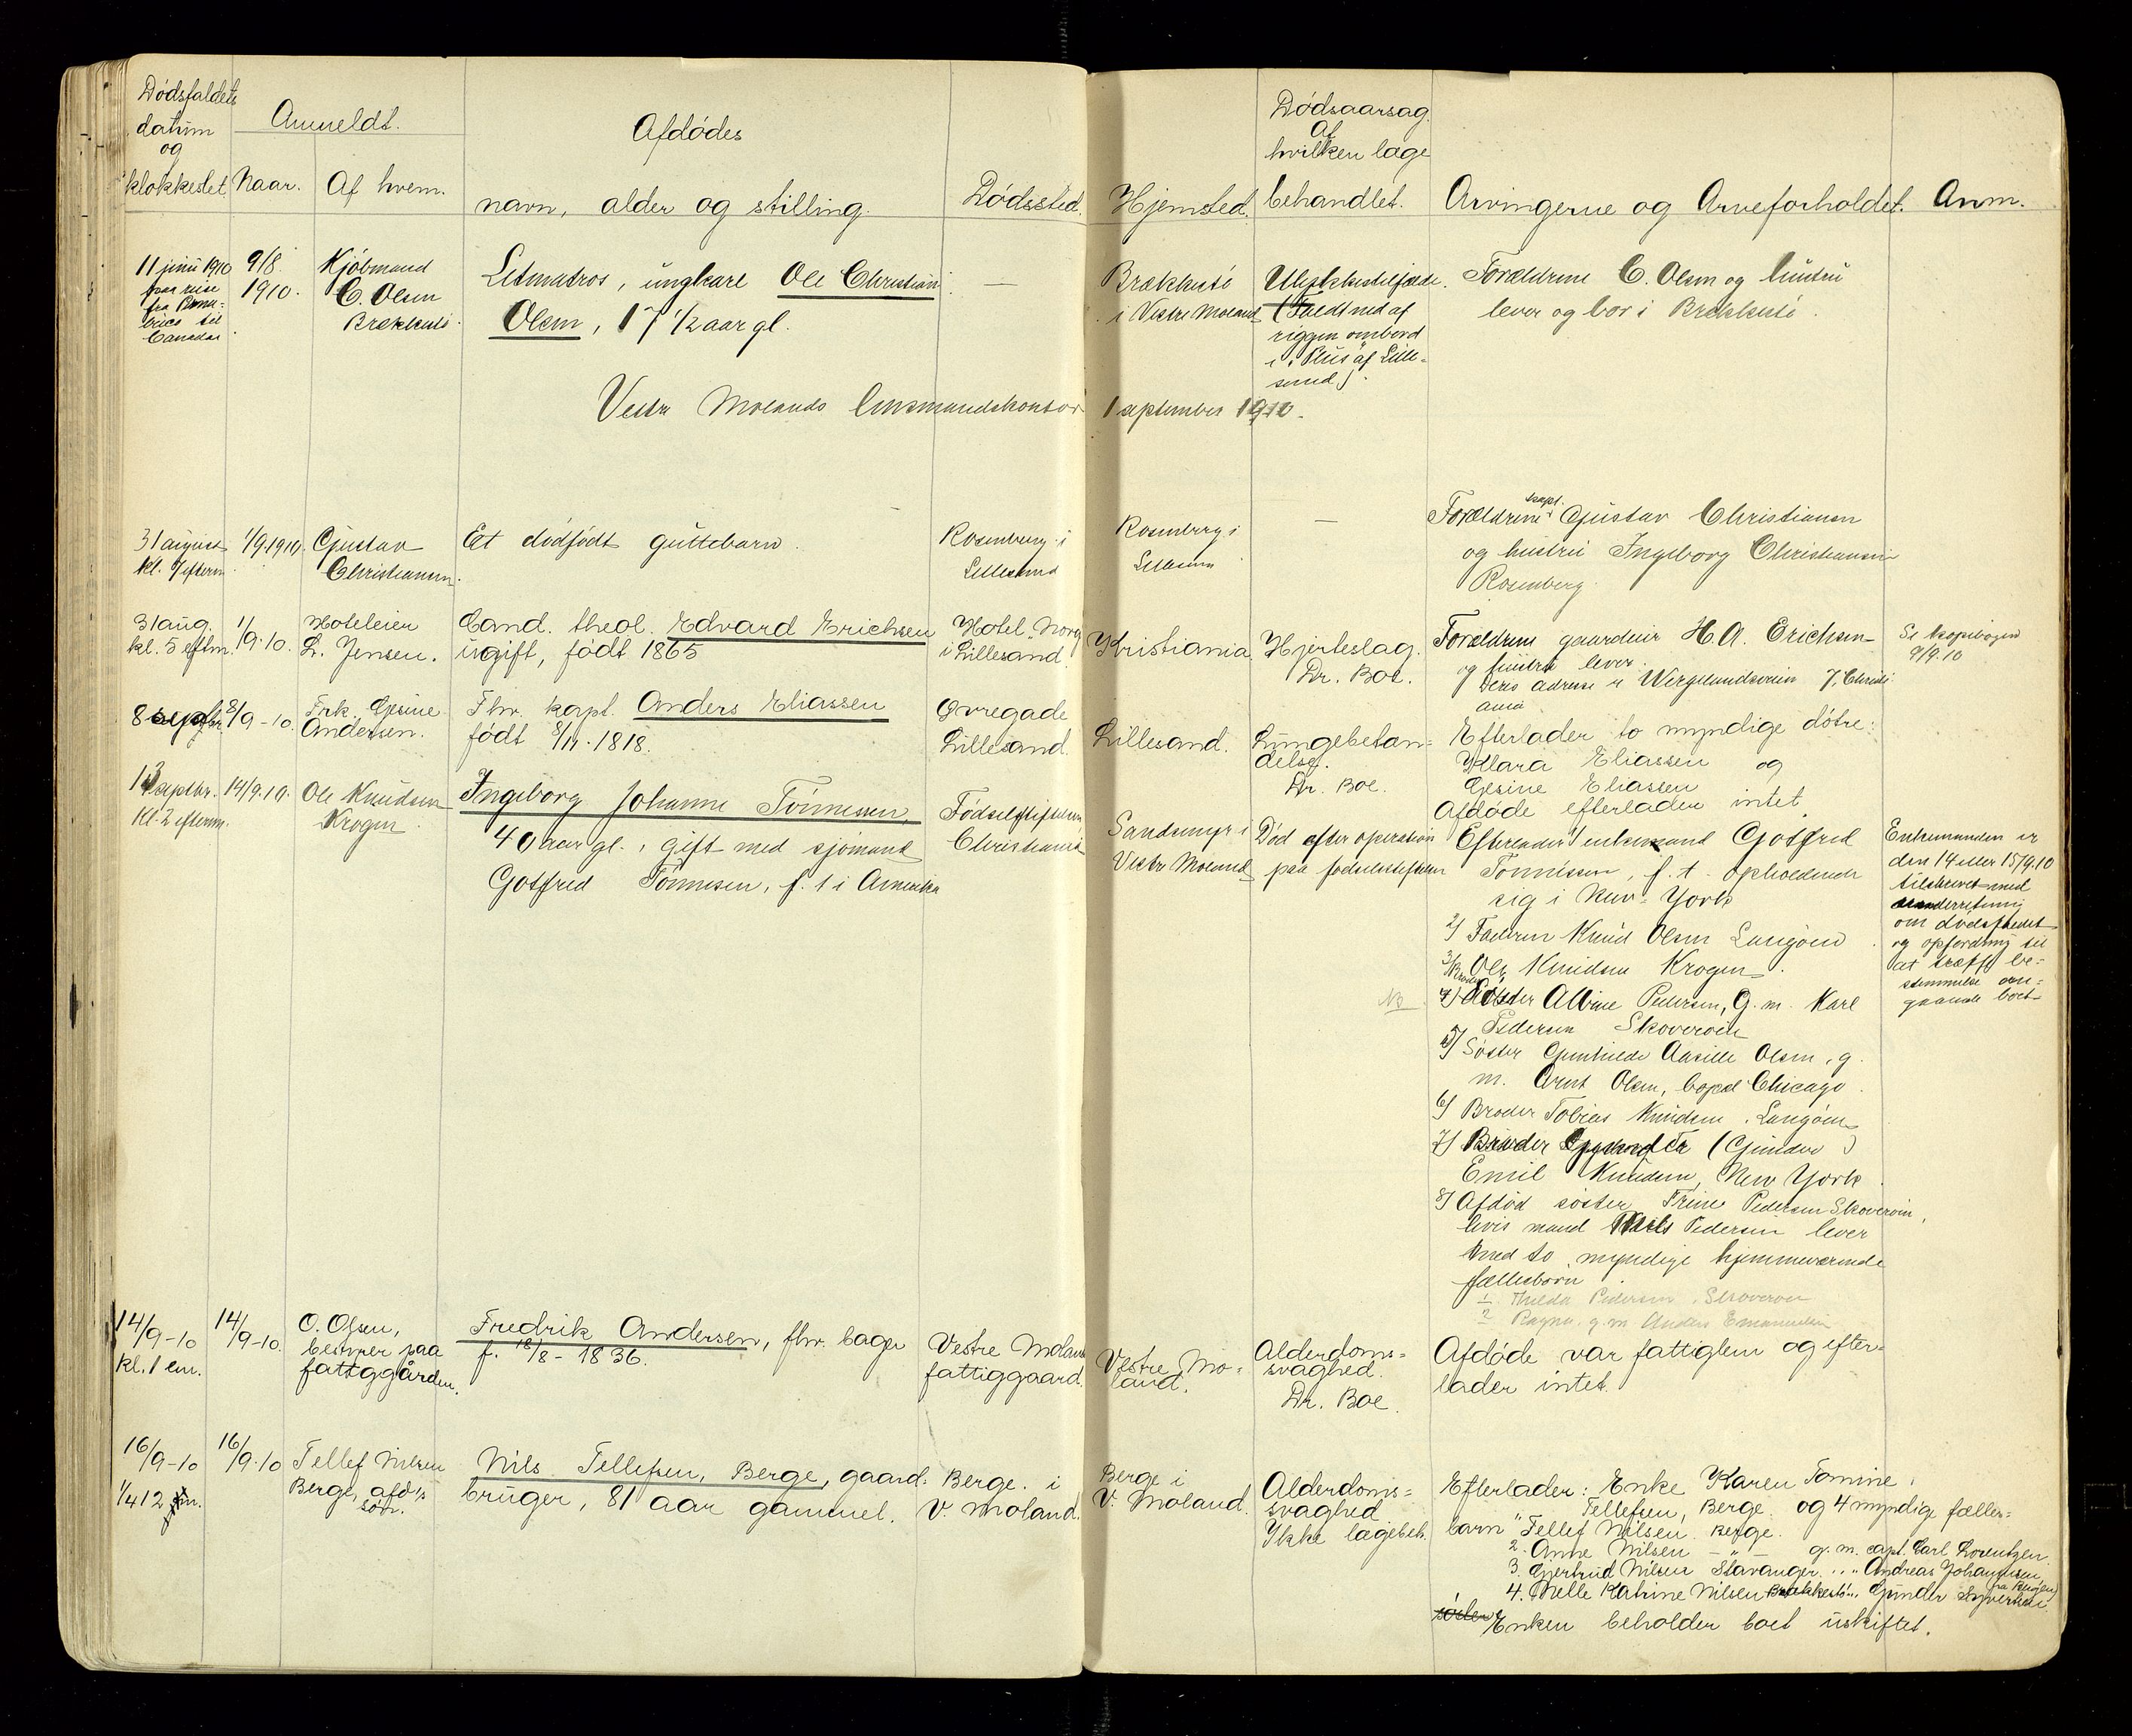 Dødsfaldets
datum
og
klokkeslet.
Anmeldt.
Naar.
Af hvem.
Afdødes
navn, alder og stilling.
Dødssted.
Hjemsted.
Dødsaarsag.
Af
hvilken læge
behandlet.
Arvingerne og Arveforholdet.
Anm.
11 juni 1910
paa reise
fra
til
Canada
9/8.
1910.
Kjøbmand
C. Olsen
Brækkestø.
Letmatros, ungkarl Ole Christian
Olsen, 17 1/2 aar gl.
—
Brækkestø
i Vestre Moland
Ulykkestilfælde.
(Faldt ned af
riggen ombord
i "Plus" af Lille-
sand).
Forældrene C. Olsen og hustru
lever og bor i Brækkestø.
Vestre Molands lensmandskontor 1 september 1910.
31 august
kl. 7 efterm
1/9 1910.
Gustav
Christiansen.
Et dødfødt guttebarn.
Rosenberg i
Lillesand
Rosenberg i
Lillesand
—
Forældrene kapt. Gustav Christiansen
og hustru Ingeborg Christiansen
Rosenberg.
31 aug.
kl. 5 eftm.
1/9.10.
Hoteleier
L. Jensen.
Cand. theol. Edvard Erichsen
ugift, født 1865
Hotel Norge
i Lillesand.
Kristiania
Hjerteslag.
Dr. Boe.
Forældrene gaardeier H. A. Erichsen
og hustru lever.
Deres adresse er Wergelandsveien 7, Christi-
ania
Se kopibogen
9/9.10
8 septbr.
8/9-10.
Frk. Gesine
Andersen.
Fhv. kapt. Anders Eliassen
født 8/11.1818.
Øvregade
Lillesand.
Lillesand.
Lungebetæn-
delse.
Dr. Boe.
Efterlader to myndige døtre:
Klara Eliassen og
Gesine Eliassen
Afdøde efterlader intet
13 septbr.
kl. 2 efterm.
14/9.10.
Ole Knudsen
Krogen.
Ingeborg Johanne Tønnesen,
40 aar gl., gift med sjømand
Gotfred Tønnesen, f. t. i Amerika
Fødselsstiftelsen
Christiania
Sandsmyr i
Vestre Moland
Død efter operation
paa fødselsstiftelsen
Efterlader 1/ enkemand Gotfred
Tønnesen, f. t. opholdende
sig i New-York
2/ Faderen Knud Olsen Langøen
3/ Broder Ole Knudsen Krogen.
NB
4) Søster Alvine Pedersen, G. m. Karl
Pedersen Skoverøen
5/ Søster Gunhilde Aasille Olsen, g.
m. Arnt Olsen, bopæl Chicago.
6/ Broder Tobias Knudsen, Langøen
7/ Broder (Gunder)
Emil Knudsen, New York.
8/ Afdød søster Trine Pedersen Skoverøen,
hvis mand Nils Pedersen lever
med to myndige hjemmeværende
fællesbørn.
1 Hilda Pedersen, Skoverøen
2 Ragna, g. m. Anders Emanuelsen
Enkemanden er
den 14 eller 15/9.10
tilskrevet med
underretning
om dødsfaldet
og opfordring til
at træffe be-
stemmelse an-
gaaende boet
14/9-10
kl. 1 em.
14/9-10.
O. Olsen,
bestyrer paa
fattiggården.
Fredrik Andersen, fhv. bager
f. 18/8-1836.
Vestre Moland
fattiggaard.
Vestre Mo-
land.
Alderdoms-
svaghed.
Dr. Boe.
Afdøde var fattiglem og efter-
lader intet.
16/9-10
1/4 12 fm.
16/9.10
Tellef Nilsen
Berge, afd's
søn.
Nils Tellefsen, Berge, gaard-
bruger, 81 aar gammel.
Berge. i
V. Moland.
Berge i
V. Moland.
Alderdoms-
svaghed
Ikke lægebeh.
Efterlader: Enke Karen Tomine
Tellefsen, Berge. og 4 myndige fælles-
barn 1. Tellef Nilsen Berge.
2. Anne Nilsen —"— g. m. capt. Carl Lorentzen
3. Gjertrud Nilsen Stavanger. " " Andreas Johannsen
4. Melle Katrine Nilsen Brækkestø " " Gunder
søsler Enken beholder boet uskiftet.